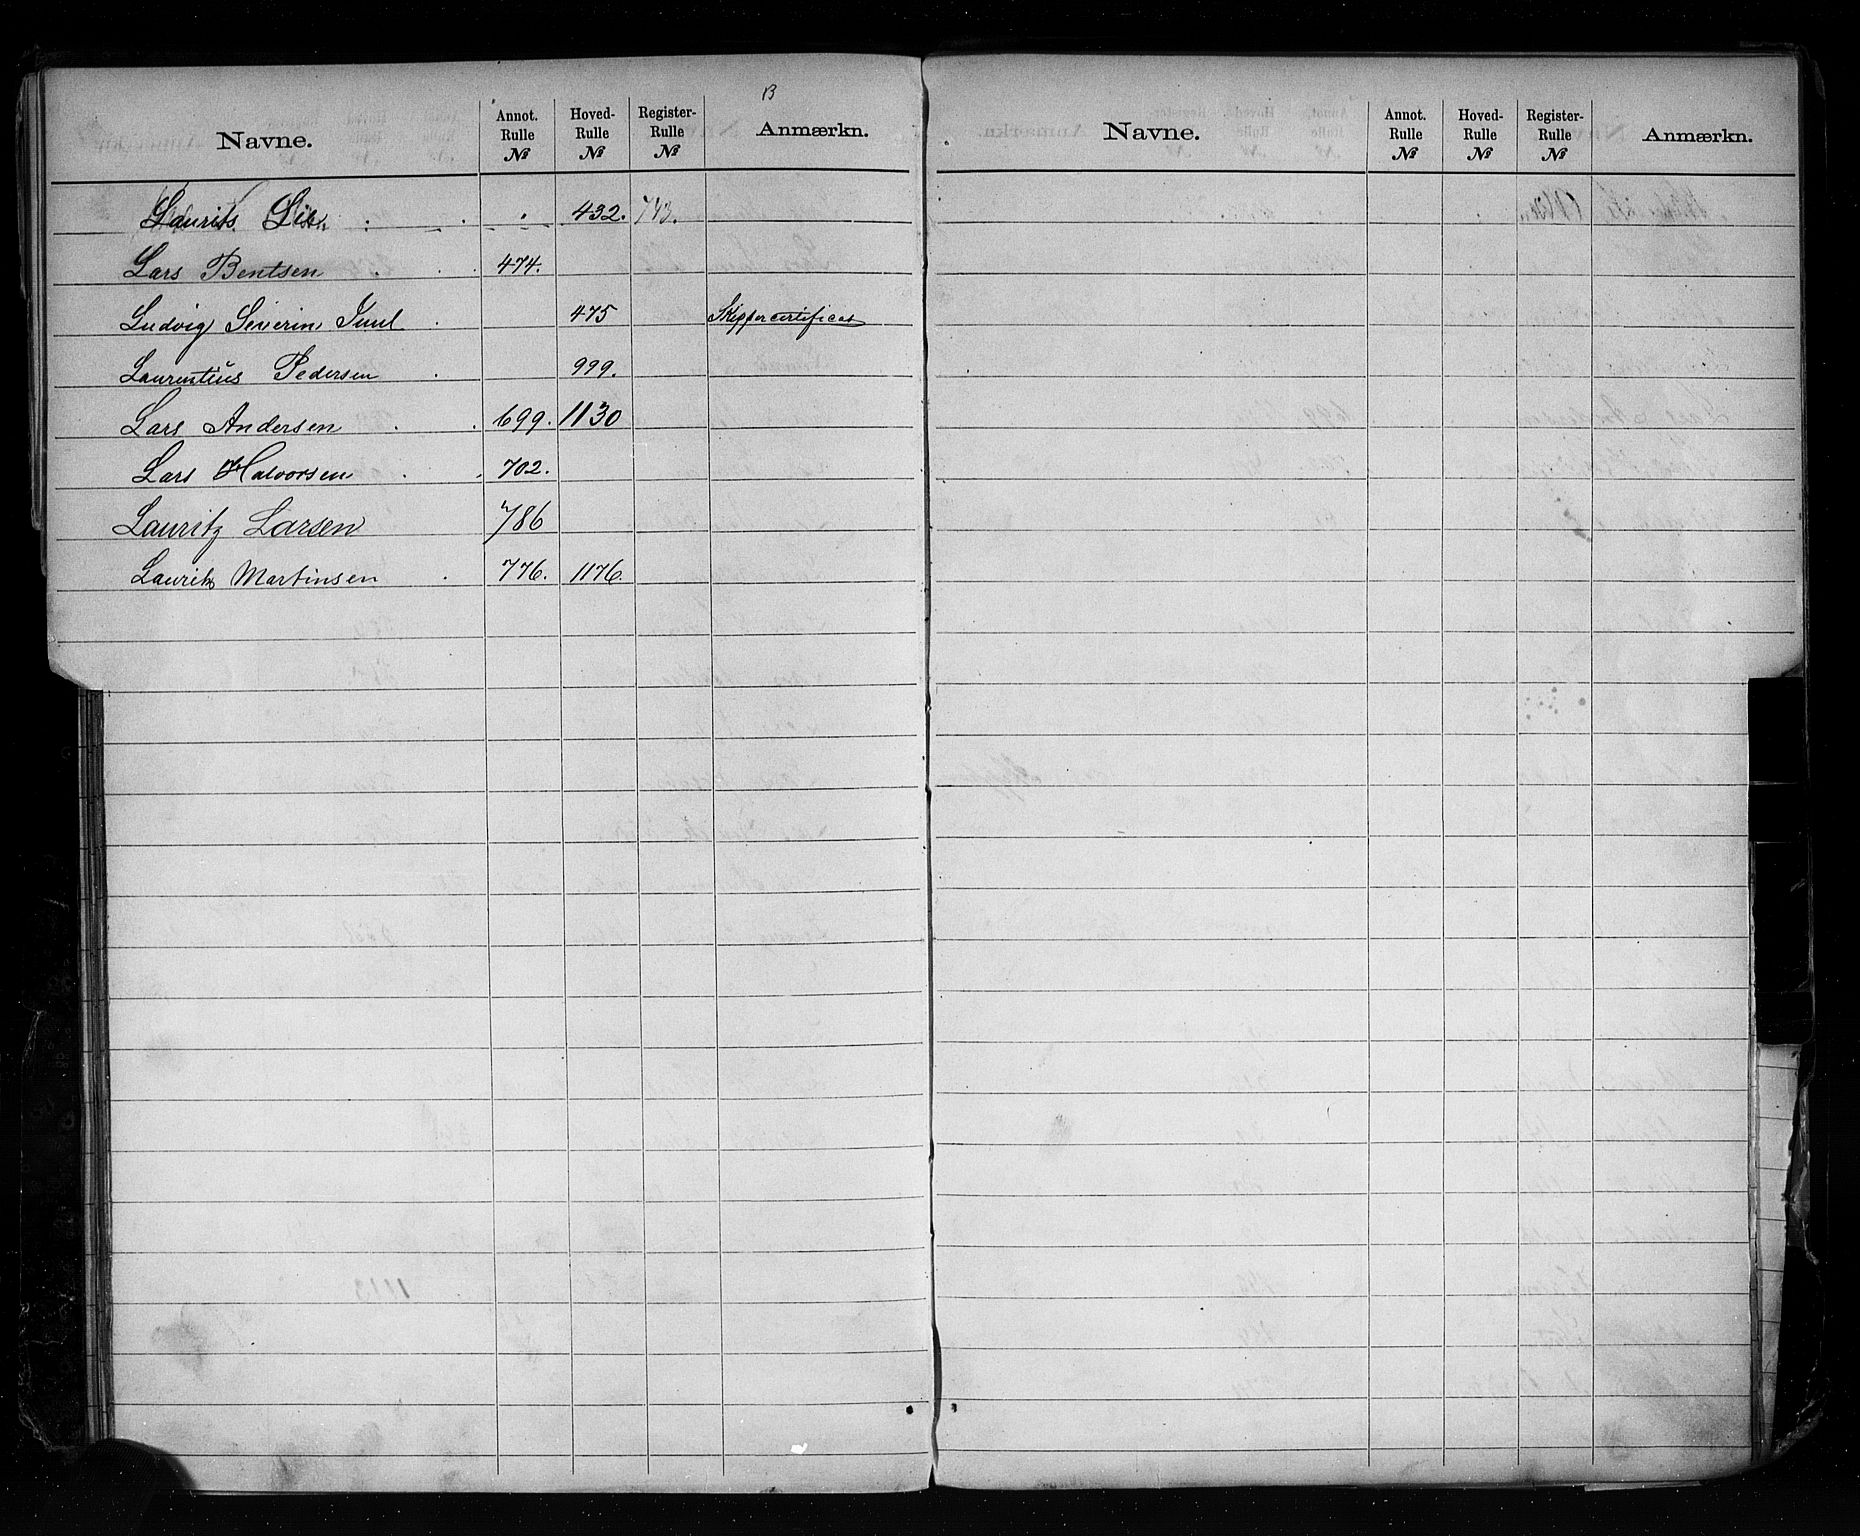 B
Navne. Annot. Rulle № Hoved-Rulle № Register-Rulle № Anmærkn.
Laurits 432. 743.
Lars Bentsen 474.
Ludvig Severin Juul 475 Skippercertificat
Laurentius Pedersen 999.
Lars Andersen 699. 1130
Lars Halvorsen 702.
Lauritz Larsen 786
Lauritz Martinsen 776. 1176.
Navne. Annot. Rulle № Hoved-Rulle № Register-Rulle № Anmærkn.